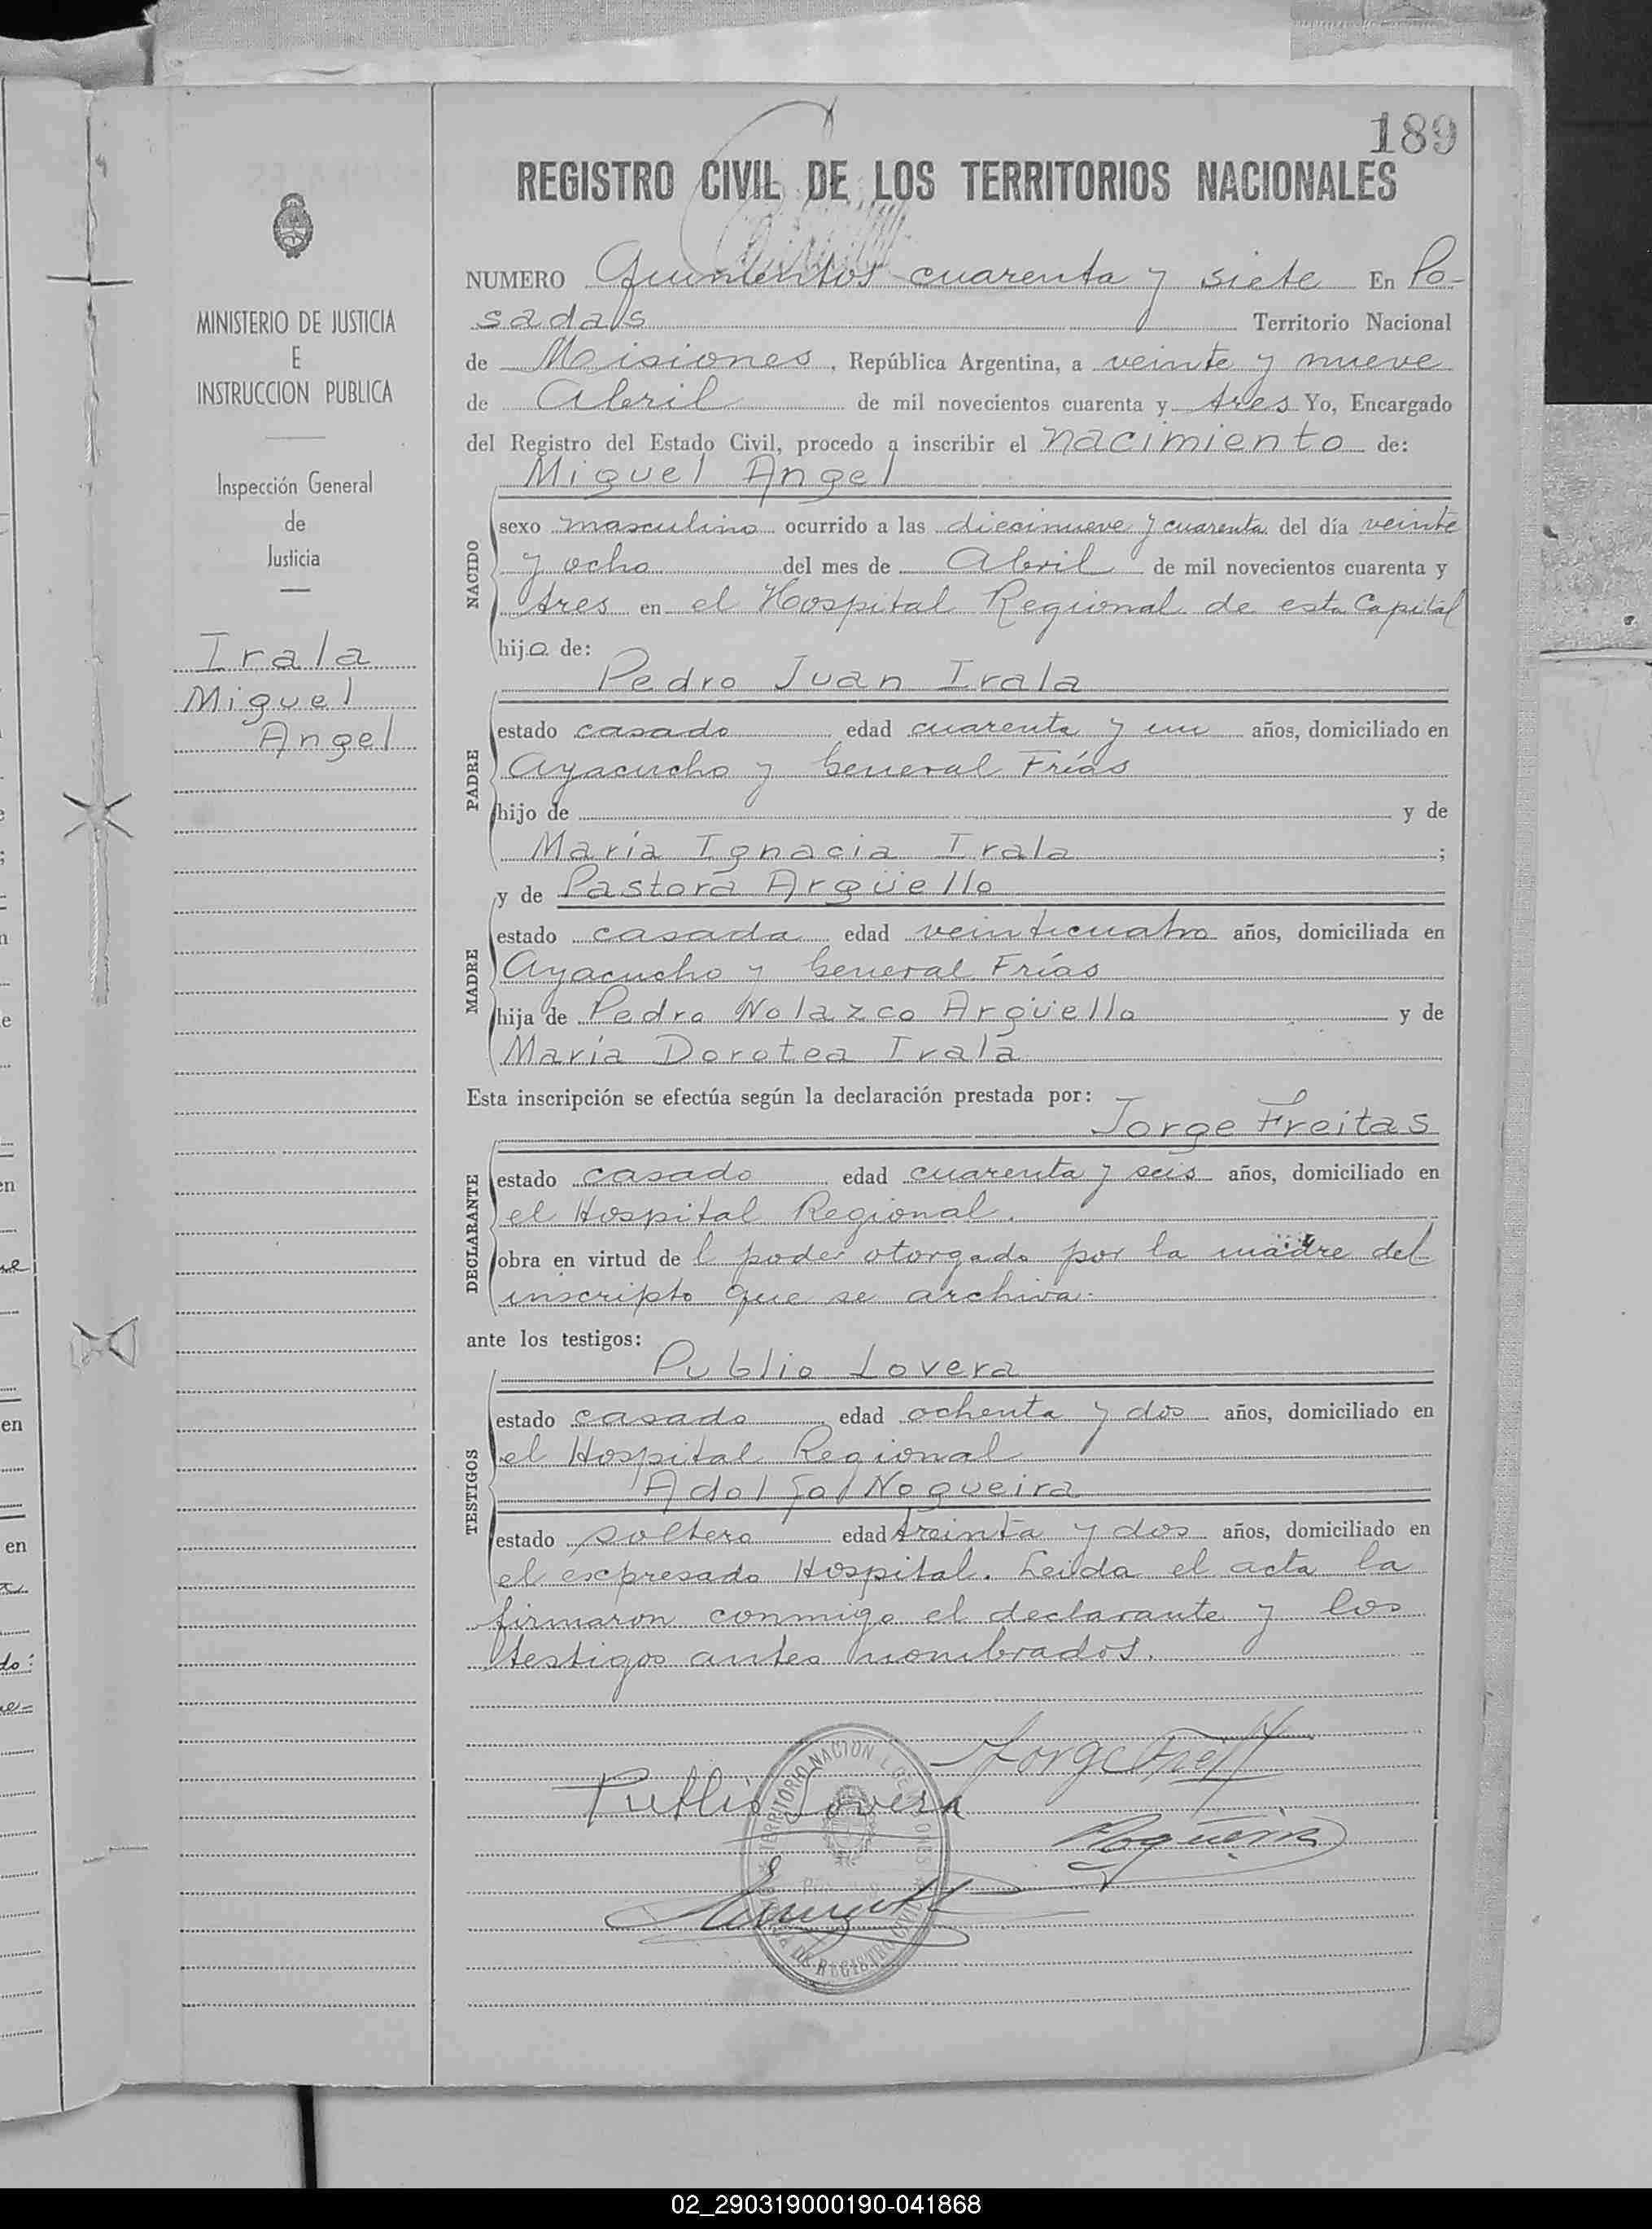 189
REGISTRO CIVIL DE LOS TERRITORIOS NACIONALES
MINISTERIO DE JUSTICIA
E
INSTRUCCION PUBLICA
Inspección General
de
Justicia
Irala
Miguel
Angel
NUMERO Quinientos cuarenta y siete En Po-
sadas Territorio Nacional
de Misiones, República Argentina, a veinte y nueve
de Abril de mil novecientos cuarenta y tres Yo, Encargado
del Registro del Estado Civil, procedo a inscribir el nacimiento de:
Miguel Angel
NACIDO
sexo masculino ocurrido a las diecinueve y cuarenta del día veinte
y ocho del mes de Abril de mil novecientos cuarenta y
tres en el Hospital Regional de esta Capital
hijo de:
Pedro Juan Irala
PADRE
estado casado edad cuarenta y un años, domiciliado en
Ayacucho y General Frías
hijo de y de
María Ignacia Irala ;
y de Pastora Argüello
MADRE
estado casada edad veinticuatro años, domiciliada en
Ayacucho y General Frías
hija de Pedro Nolazco Argüello y de
María Dorotea Irala
Esta inscripción se efectúa según la declaración prestada por:
Jorge Freitas
DECLARANTE
estado casado edad cuarenta y seis años, domiciliado en
el Hospital Regional.
obra en virtud de l poder otorgado por la madre del
inscripto que se archiva.
ante los testigos:
Publio Lovera
TESTIGOS
estado casado edad ochenta y dos años, domiciliado en
el Hospital Regional
Adolfo Nogueira
estado soltero edad treinta y dos años, domiciliado en
el expresado Hospital. Leida el acta la
firmaron conmigo el declarante y los
testigos antes nombrados.
Publio Lovera
Nogueira
02_290319000190-041868